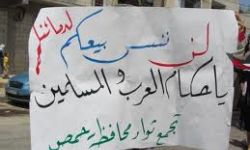 لن ننسى بيعكم لدمائنا
يا حكام العرب و المسلمين
تجمع ثوار محافظة حمص